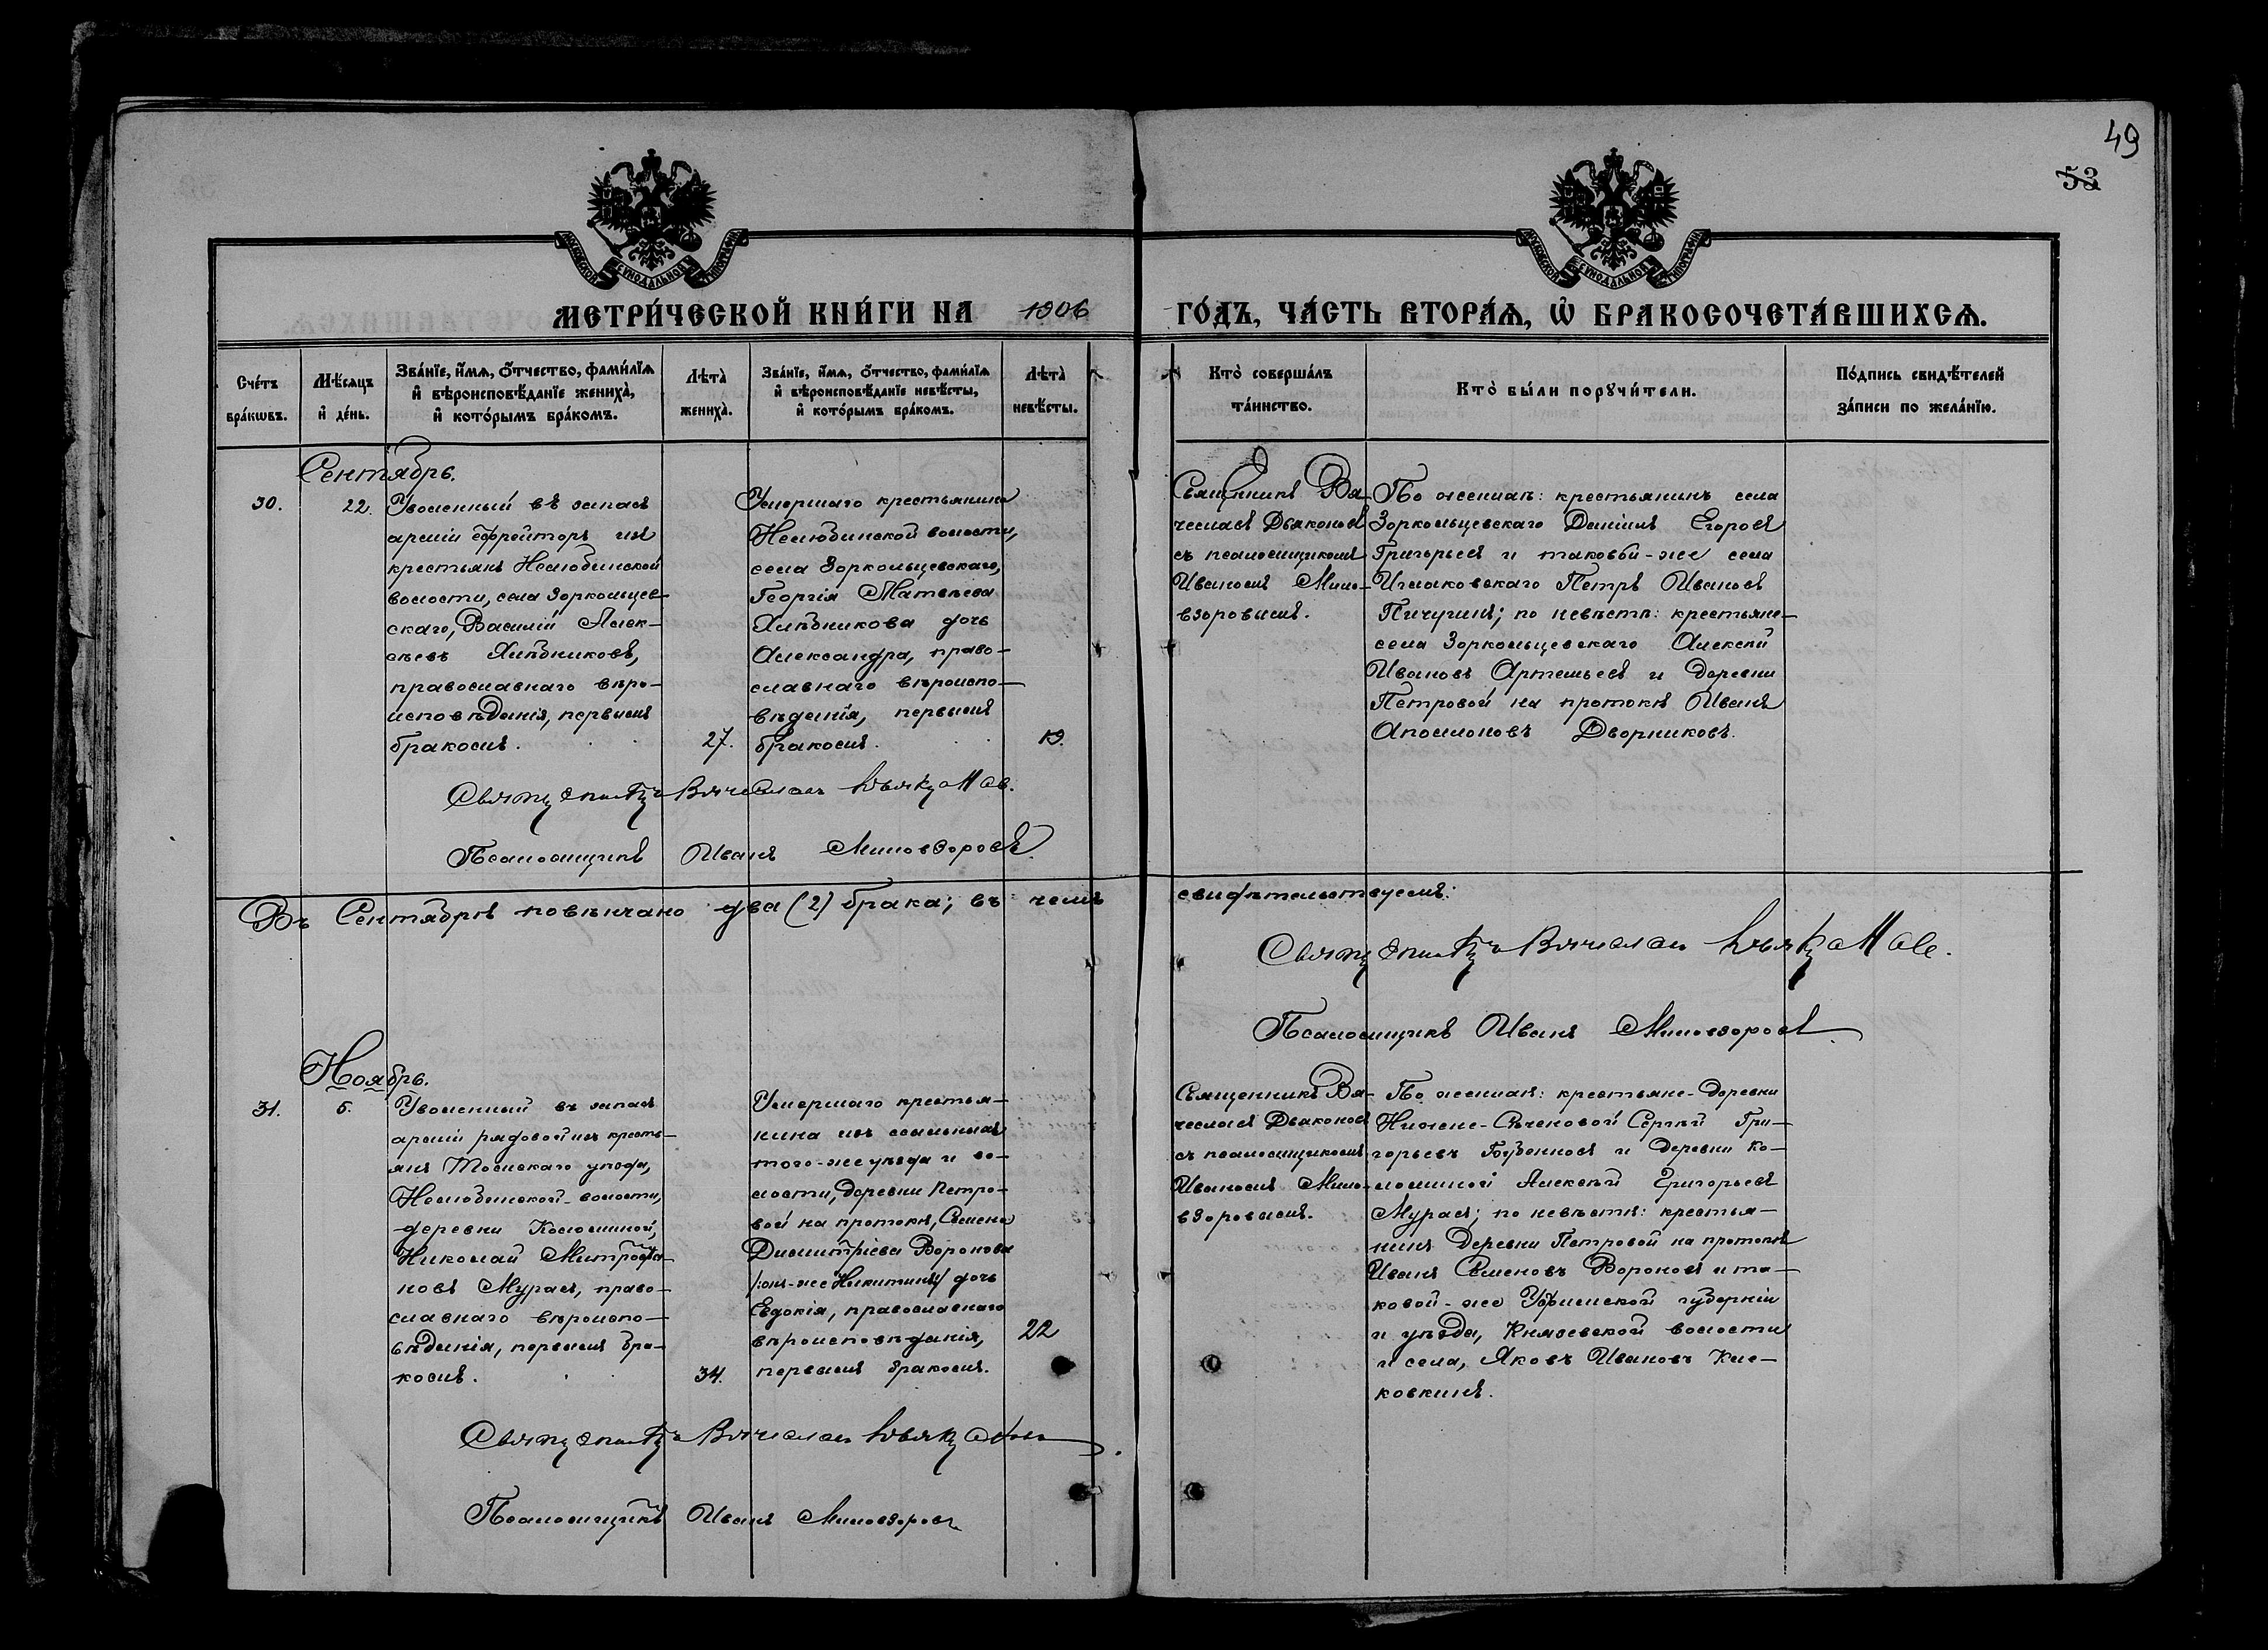 49
53
МОСКОВСКОЙ СѴНОДАЛЬНОЙ ТИПОГРАФІИ
МОСКОВСКОЙ СѴНОДАЛЬНОЙ ТИПОГРАФІИ
МЕТРИ́ЧЕСКОЙ КНИ́ГИ НА 1906
ГО́ДЪ, ЧА́СТЬ ВТОРА́Ѧ, Ѡ҆ БРАКОСОЧЕТА́ВШИХСѦ.
Сче́тъ
бра́кѡвъ.
Мѣ́сѧцъ
и҆ де́нь.
Зва́нїе, и҆́мѧ, ѻ҆́тчество, фами́лїѧ
и҆ вѣроисповѣ́данїе жениха̀,
и҆ кото́рымъ бра́комъ.
Лѣта̀
жениха̀.
Зва́нїе, и҆́мѧ, ѻ҆́тчество, фами́лїѧ
и҆ вѣроисповѣ́данїе невѣ́сты,
и҆ кото́рымъ бра́комъ.
Лѣта̀
невѣ́сты.
Кто̀ соверша́лъ
та́инство.
Кто̀ бы́ли порꙋчи́тели.
По́дпись свидѣ́телей
за́писи по жела́нїю.
Сентябрь.
30.
22.
Уволенный въ запасъ
арміи ефрейторъ изъ
крестьянъ Нелюбинской
волости, села Зоркольцев-
скаго, Василій Алек-
сѣевъ Хлѣбниковъ,
православнаго вѣро-
исповѣданія, первымъ
бракомъ.
27.
Умершаго крестьянина
Нелюбинской волости,
села Зоркольцевскаго,
Георгія Матвѣева
Хлѣбникова дочь
Александра, право-
славнаго вѣроиспо-
вѣданія, первымъ
бракомъ.
19.
Священникъ Вя-
чеславъ Дьяконовъ
съ псаломщикомъ
Иваномъ Мило-
взоровымъ.
По женихѣ: крестьянинъ села
Зоркольцевскаго Даніилъ Егоровъ
Григорьевъ и таковой-же села
Иглаковскаго Петръ Ивановъ
Пичугинъ; по невѣстѣ: крестьяне-
села Зоркольцевскаго Алексѣй
Ивановъ Артемьевъ и деревни
Петровой на протокѣ Иванъ
Аполлоновъ Дворниковъ.
Священникъ Вячеславъ Дьяконов.
Псаломщикъ Иванъ Миловзоровъ.
Въ Сентябрѣ повѣнчано два (2) брака; въ чемъ
свидѣтельствуемъ:
Священникъ Вячеславъ Дьяконов.
Псаломщикъ Иванъ Миловзоровъ.
Ноябрь.
31.
5.
Уволенный въ запасъ
арміи рядовой изъ кресть-
янъ Томскаго уѣзда,
Нелюбинской волости,
деревни Коломиной,
Николай Митрофа-
новъ Мурасъ, право-
славнаго вѣроиспо-
вѣданія, первымъ бра-
комъ.
34.
Умершаго крестья-
нина изъ ссыльныхъ
того-же уѣзда и во-
лости, деревни Петро-
вой на протокѣ, Семена
Димитріева Воронова
/:онъ-же Никитинъ/ дочь
Евдокія, православнаго
вѣроисповѣданія,
первымъ бракомъ.
22
Священникъ Вя-
чеславъ Дьяконовъ
съ псаломщикомъ
Иваномъ Мило-
взоровымъ.
По женихѣ: крестьяне-деревни
Нижне-Сѣченовой Сергѣй Гри-
горьевъ и деревни Ко-
ломиной Алексѣй Григорьевъ
Мурасъ; по невѣстѣ: крестья-
нинъ деревни Петровой на протокѣ
Иванъ Семеновъ Вороновъ и та-
ковой-же Уфимской губерніи
и уѣзда, Князевской волости
и села, Яковъ Ивановъ
Священникъ Вячеславъ Дьяконовъ.
Псаломщикъ Иванъ Миловзоровъ